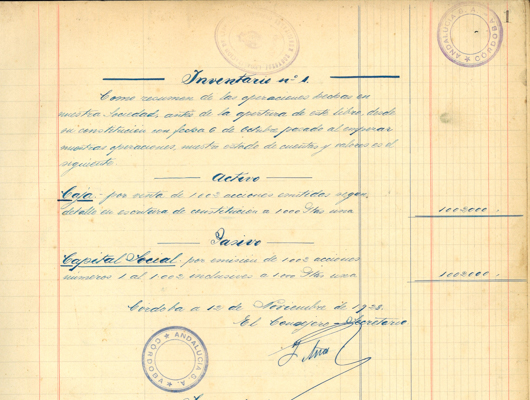 1
ANDALUCIA S. A. * CORDOBA *
Inventario nº 1.
Como resumen de las operaciones hechas en
nuestra Sociedad, antes de la apertura de este libro, desde
su constitución con fecha 6 de Octubre pasado al empezar
nuestras operaciones, nuestro estado de cuentas y valores es el
siguiente.
Activo
Caja: por venta de 1002 acciones emitidas según
detalle en escritura de constitución a 1000 Ptas una
1002000.
Pasivo
Capital Social, por emisión de 1002 acciones
números 1 al 1002 inclusives a 1000 Ptas una
1002000.
Cordoba a 12 de Noviembre de 1928.
El Consejero-Secretario
ANDALUCIA S. A. * CORDOBA *